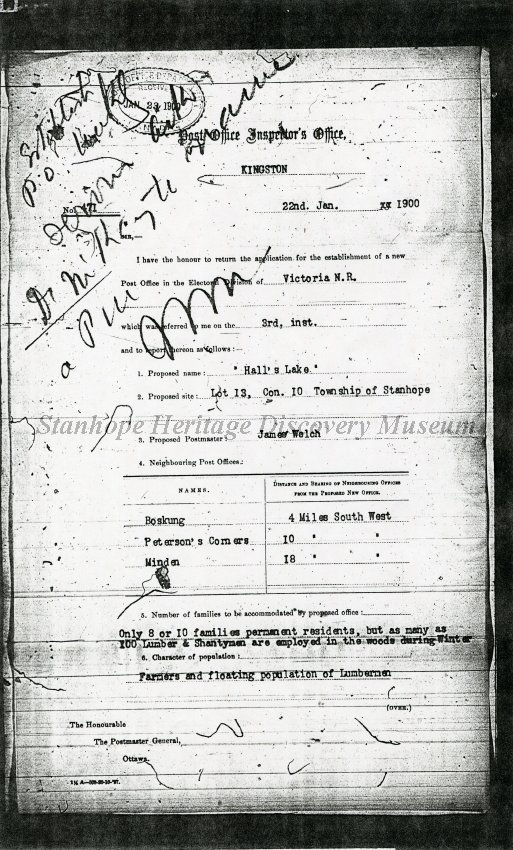 JAN 23 1900
Establish
P.O.
Post Office Inspector's Office,
KINGSTON
No. 171
22nd. Jan. xx 1900
SIR,—
I have the honour to return the application for the establishment of a new
Post Office in the Electoral Division of Victoria N.R.
which was referred to me on the 3rd, inst.
and to report thereon as follows:—
1. Proposed name: "Hall's Lake"
2. Proposed site: Lot 13, Con. 10 Township of Stanhope
Stanhope Heritage Discovery Museum
3. Proposed Postmaster: James Welch
4. Neighbouring Post Offices:
NAMES.
DISTANCE AND BEARING OF NEIGHBOURING OFFICES
FROM THE PROPOSED NEW OFFICE.
Boskung 4 Miles South West
Peterson's Corners 10 " "
Minden 18 " "
5. Number of families to be accommodated by proposed office:
Only 8 or 10 families permanent residents, but as many as
100 Lumber & Shantymen are employed in the woods during Winter
6. Character of population:
Farmers and floating population of Lumbermen
(OVER.)
The Honourable
The Postmaster General,
Ottawa.